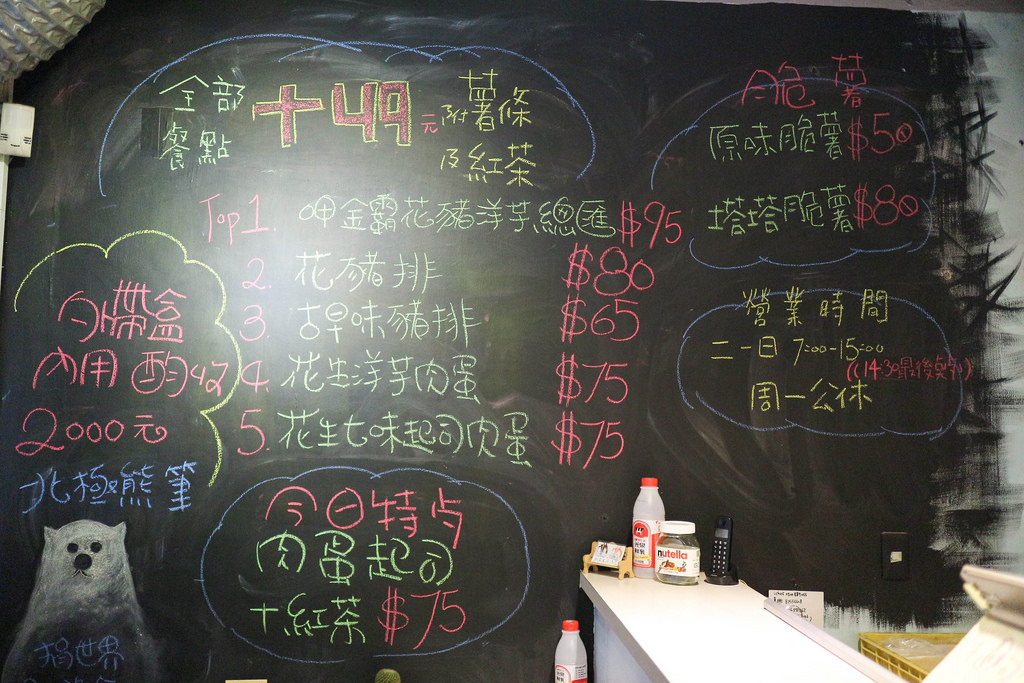 全部餐點 +49元 附薯條及紅茶
Top 1. 呷金霸花豬洋芋總匯 $95
2. 花豬排 $80
3. 古早味豬排 $65
4. 花生洋芋肉蛋 $75
5. 花生七味起司肉蛋 $75
脆薯
原味脆薯 $50
塔塔脆薯 $80
營業時間
二-日 7:00-15:00
(14:30最後點餐)
周一公休
內用酌收
2000元
北極熊筆
今日特点
肉蛋起司
+紅茶 $75
捐世界
nutella